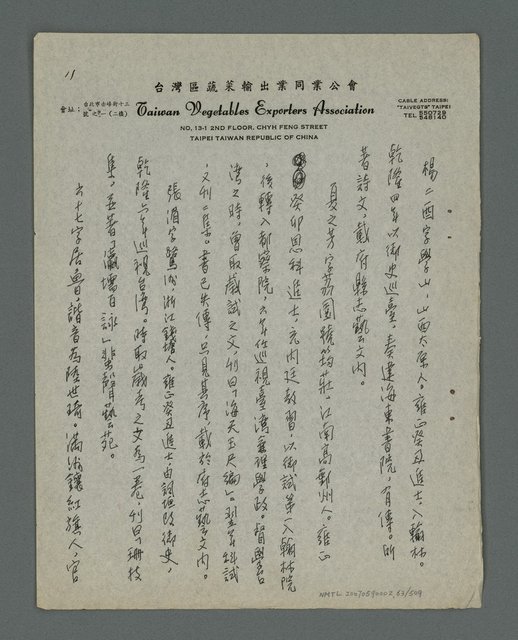 11
台灣區蔬菜輸出業同業公會
會址：台北市赤峰街十三號之一（二樓）
Taiwan Vegetables Exporters Association
CABLE ADDRESS:
"TAIVEGTS" TAIPEI
TEL 550729
548140
NO, 13-1 2ND FLOOR, CHYH FENG STREET
TAIPEI TAIWAN REPUBLIC OF CHINA
楊二酉字學山，山西太原人。雍正癸丑進士，入翰林。
乾隆四年以御史巡臺，奏建海東書院，有傳。所
著詩文，載府縣志藝文內。
夏之芳字荔園號筠莊，江南高郵州人。雍正
癸卯恩科進士，充內廷教習，以御試第一入翰林院
，後轉入都察院，六年任巡視臺灣兼理學政。督學台
灣之時，曾取歲試之文，刊曰「海天玉尺編」。翌年科試
，又刊二集。書已失傳，只見其序載於府志藝文內。
張湄字鷺洲，浙江錢塘人。雍正癸丑進士，由
乾隆六年巡視台灣。時取歲考之文為一卷，刊曰珊枝
集，又著「瀛壖百詠」蜚聲藝苑。
六十七字居魯，諧音為陸世琦。滿洲鑲紅旗人，官
NMTL 20070590002, 63/509